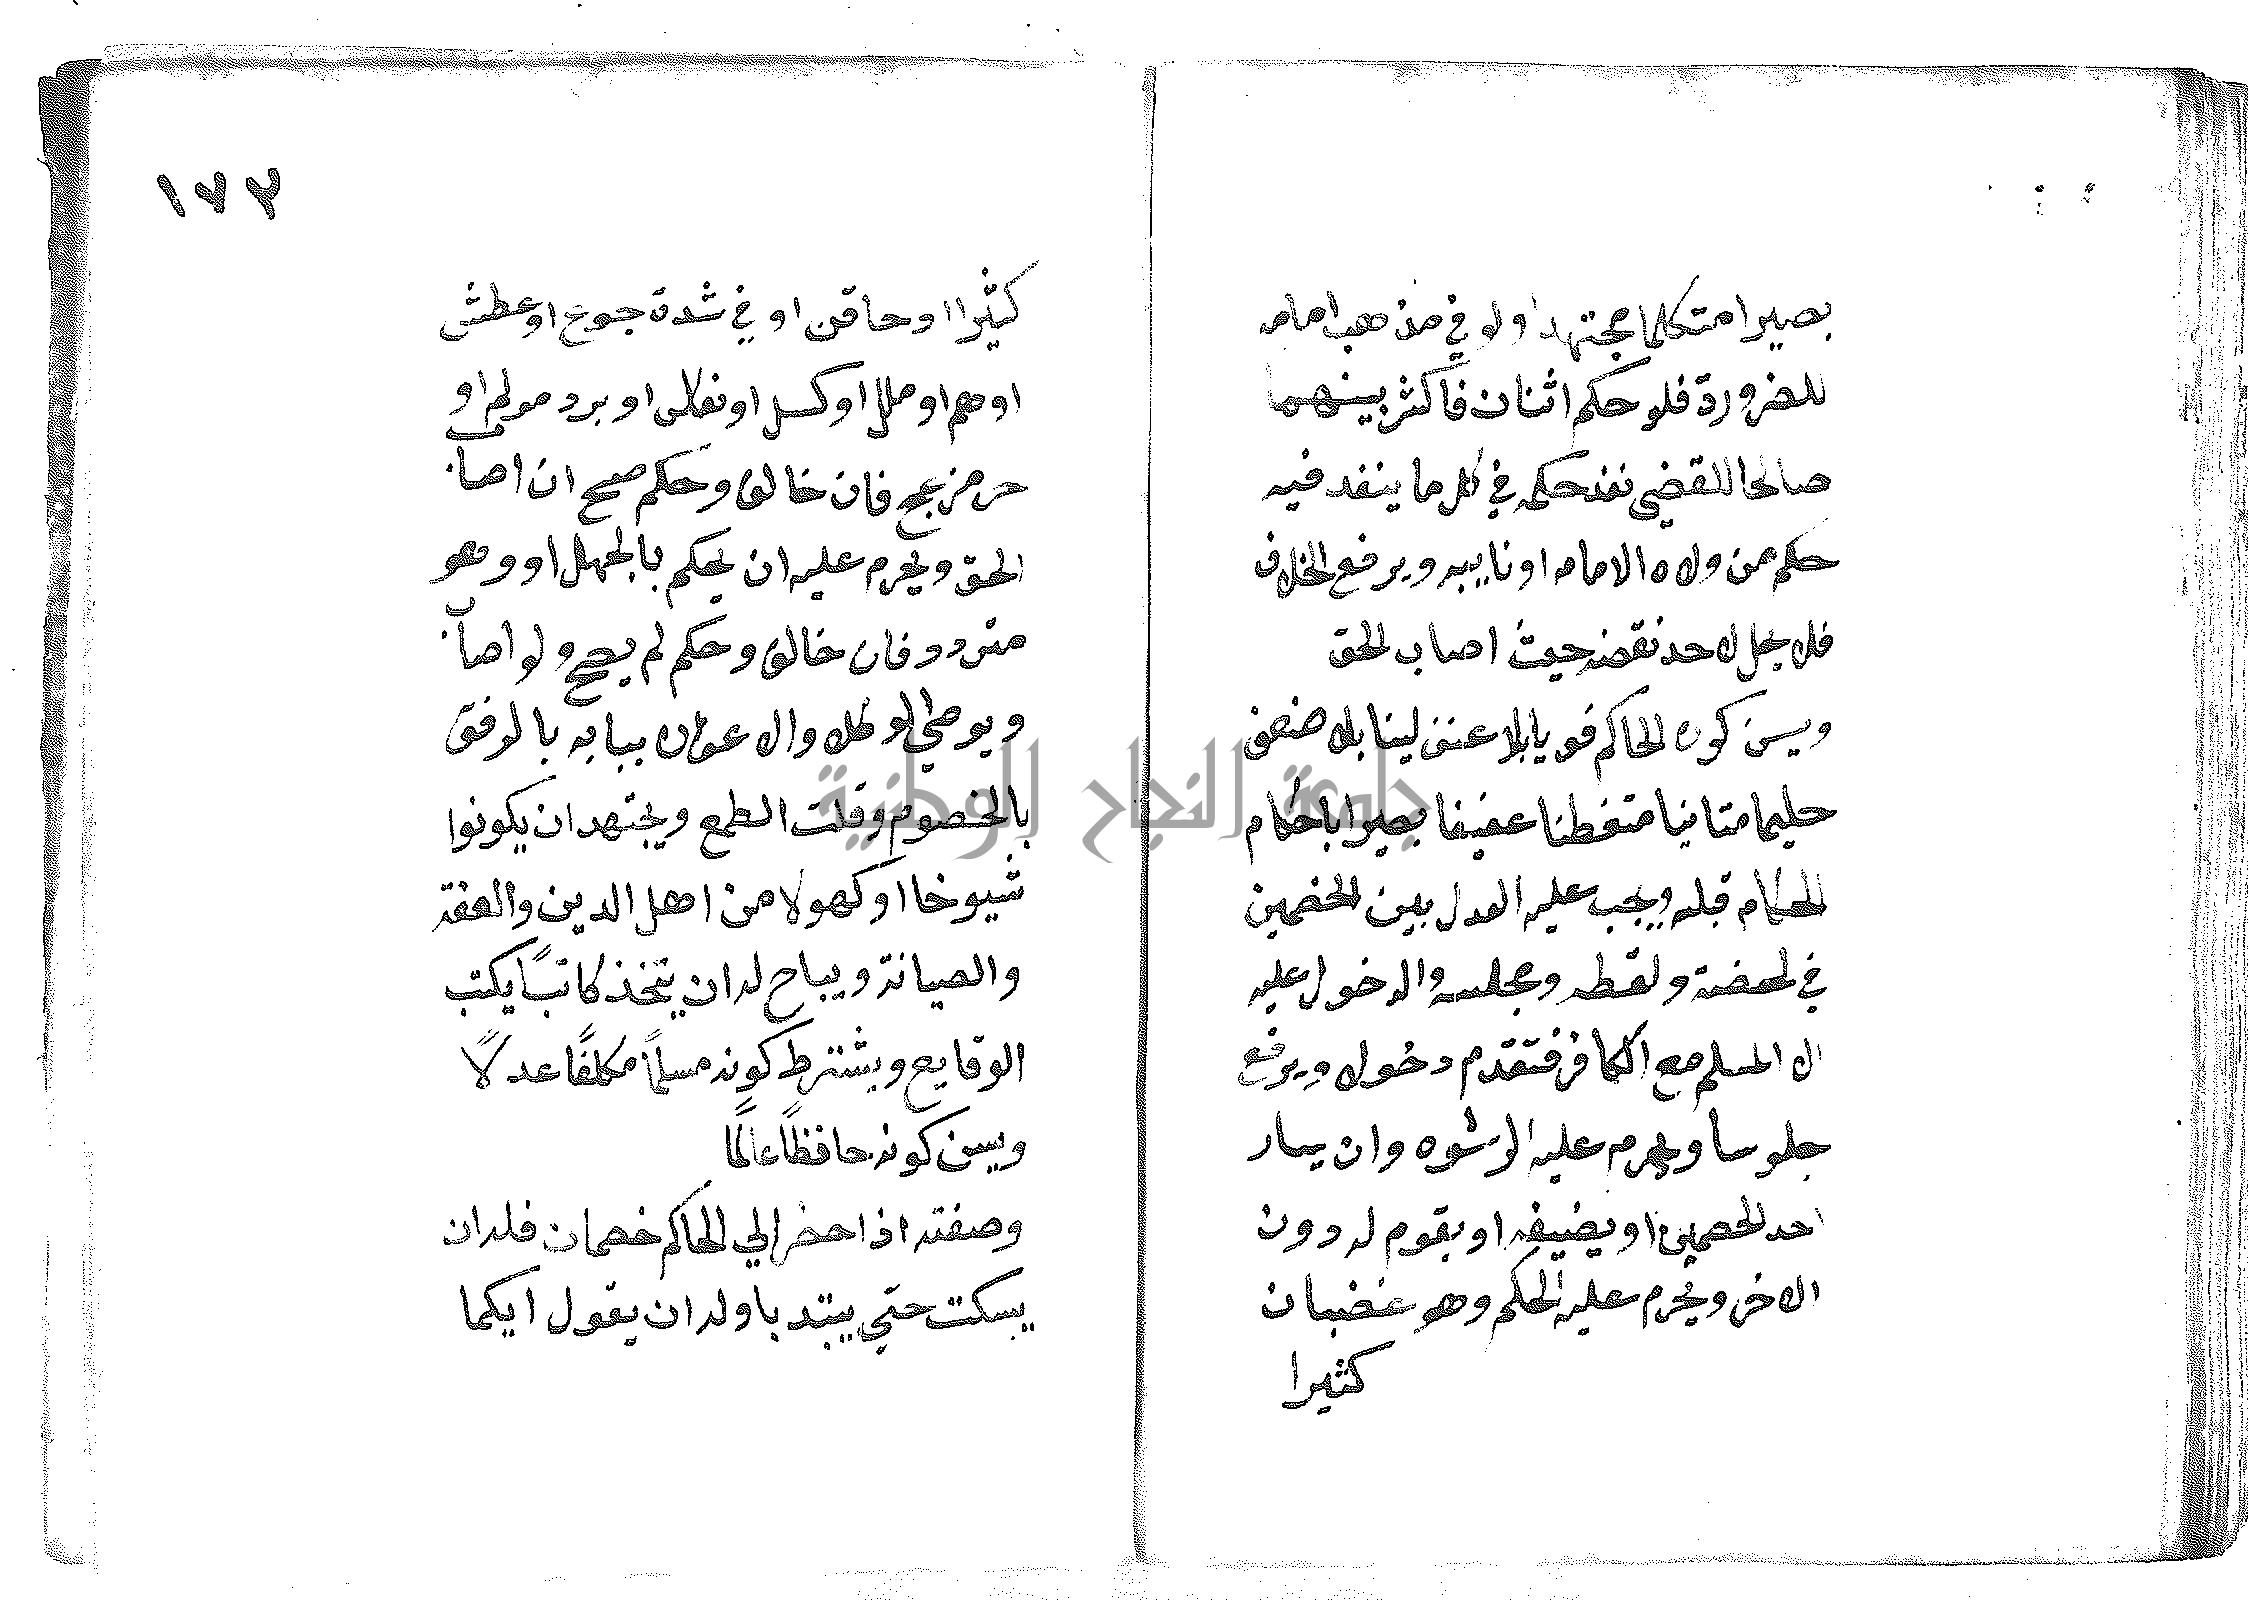 بصيرا متكلما مجتهدا ولو في مذهب امامه
للضرورة فلو حكم اثنان فاكثر بينهما
صالحا للقضي نفذ حكمه في كل ما ينفد فيه
حكم من ولاه الامام او نايبه ويرفع الخلاف
فلا يحل لاحد نقضه حيث اصاب الحق
ويسن كون الحاكم قويا بلا عنف لينا بلا ضعف
حليما متانيا متفطنا عفيفا بصيرا باحكام
الحكام قبله ويجب عليه العدل بين الخصمين
في لحضه ولفطه ومجلسه والدخول عليه
الا المسلم مع الكافر فتقدم دخولا ويرفع
جلوسا ويحرم عليه الرشوه وان يسار
احد الخصمين او يضيفه او يقوم له دون
الاخر ويحرم عليه الحكم وهو غضبان
كثيرا
١٧٢
كثيرا او حاقن او في شدة جوع او عطش
او هم او ملل او كسل او نعاس او برد مولم او
حر مزعج فان خالف وحكم صح ان اصاب
الحق ويحرم عليه ان يحكم بالجهل او وهو
متردد فان خالف وحكم لم يصح ولو اصاب
ويوصي الوكلا والاعوان ببابه بالرفق
بالخصوم وقلت الطمع ويجتهد ان يكونوا
شيوخا او كهولا من اهل الدين والعفة
والصيانة ويباح له ان يتخذ كاتبًا يكتب
الوقايع ويشترط كونه مسلمًا مكلفًا عدلًا
ويسن كونه حافظًا عالمًا
وصفته اذا حضر الي الحاكم خصمان فله ان
يسكت حتي يبتدبا وله ان يقول ايكما
جامعة النجاح الوطنية